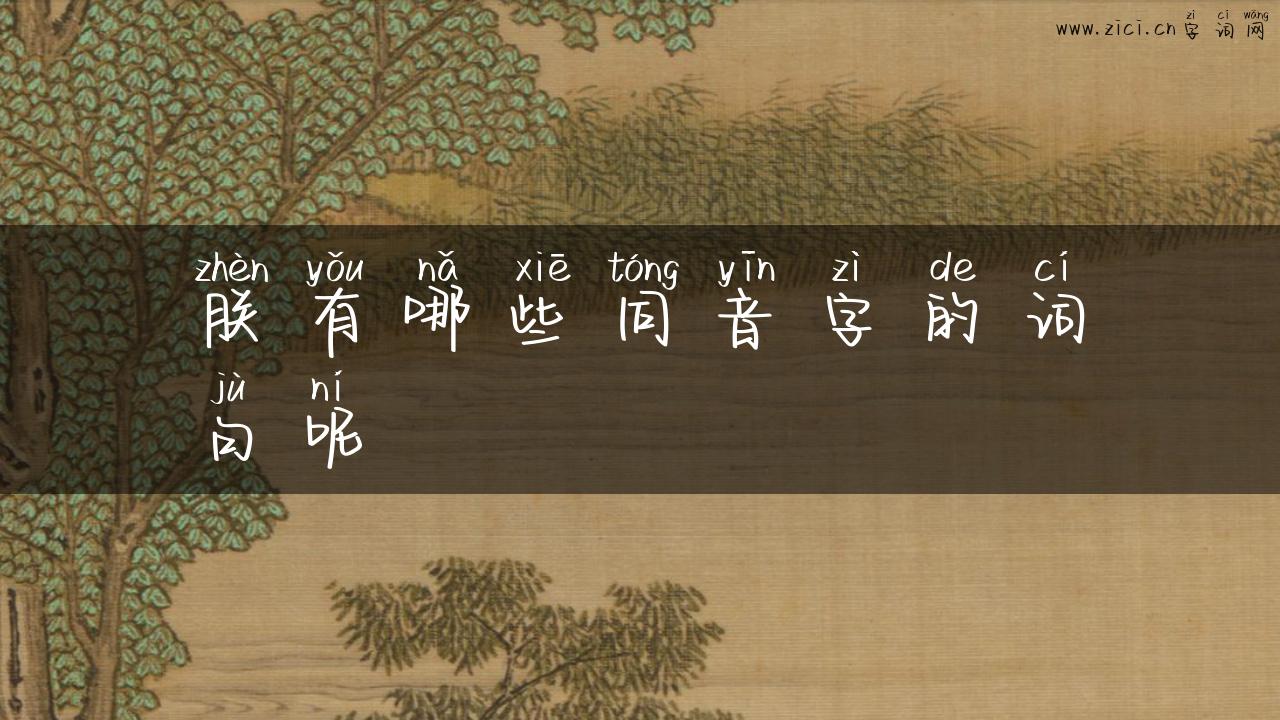 zì cí wǎng
www.zici.cn 字词网
zhèn yǒu nǎ xiē tóng yīn zì de cí
朕有哪些同音字的词
jù ní
句呢